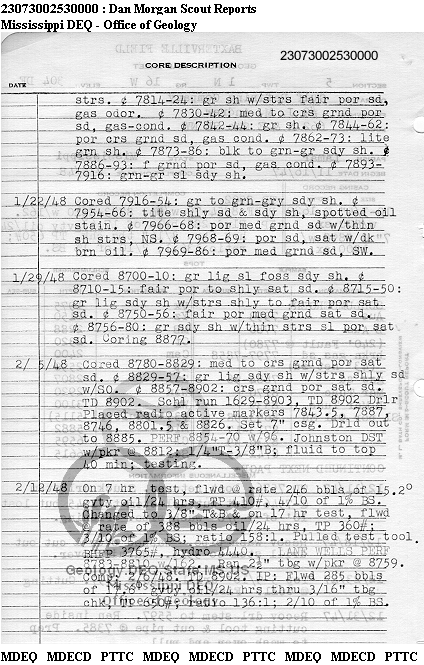 23073002530000 : Dan Morgan Scout Reports
Mississippi DEQ - Office of Geology
23073002530000
CORE DESCRIPTION
DATE
strs. ¢ 7814-24: gr sh w/strs fair por sd,
gas odor. ¢ 7830-42: med to crs grnd por
sd, gas-cond. ¢ 7842-44: gr sh. ¢ 7844-62:
por crs grnd sd, gas cond. ¢ 7862-73: lite
grn sh. ¢ 7873-86: blk to grn-gr sdy sh. ¢
7886-93: f grnd por sd, gas cond. ¢ 7893-
7916: grn-gr sl sdy sh.
1/22/48 Cored 7916-54: gr to grn-gry sdy sh. ¢
7954-66: tite shly sd & sdy sh, spotted oil
stain. ¢ 7966-68: por med grnd sd w/thin
sh strs, NS. ¢ 7968-69: por sd, sat w/dk
brn oil. ¢ 7969-86: por med grnd sd, SW.
1/29/48 Cored 8700-10: gr lig sl foss sdy sh. ¢
8710-15: fair por to shly sat sd. ¢ 8715-50:
gr lig sdy sh w/strs shly to fair por sat
sd. ¢ 8750-56: fair por med grnd sat sd.
¢ 8756-80: gr sdy sh w/thin strs sl por sat
sd. Coring 8877.
2/ 5/48 Cored 8780-8829: med to crs grnd por sat
sd. ¢ 8829-57: gr lig sdy sh w/strs shly sd
w/SO. ¢ 8857-8902: crs grnd por sat sd.
TD 8902. Schl run 1629-8903, TD 8902 Drlr
Placed radio active markers 7843.5, 7887,
8746, 8801.5 & 8826. Set 7" csg. Drld out
to 8885. PERF 8854-70 w/96. Johnston DST
w/pkr @ 8812; 1/4"T-3/8"B; fluid to top
40 min; testing.
2/12/48 On 7 hr test, flwd @ rate 246 bbls of 15.2°
gvty oil/24 hrs, TP 410#, 4/10 of 1% BS.
Changed to 3/8" T&B & on 17 hr test, flwd
@ rate of 388 bbls oil/24 hrs, TP 360#;
3/10 of 1% BS; ratio 158:1. Pulled test tool.
BHFP 3765#, hydro 4440. LANE WELLS PERF
8783-8810 w/162. Ran 2½" tbg w/pkr @ 8759.
Comp: 2/6/48. TD 8902. IP: Flwd 285 bbls
gvty oil/24 hrs thru 3/16" tbg
chk, TP 650#; ratio 136:1; 2/10 of 1% BS.
Geology.DEQ.State.MS.US
Mississippi DEQ
Office of Geology
MDEQ MDECD PTTC MDEQ MDECD PTTC MDEQ MDECD PTTC MDEQ